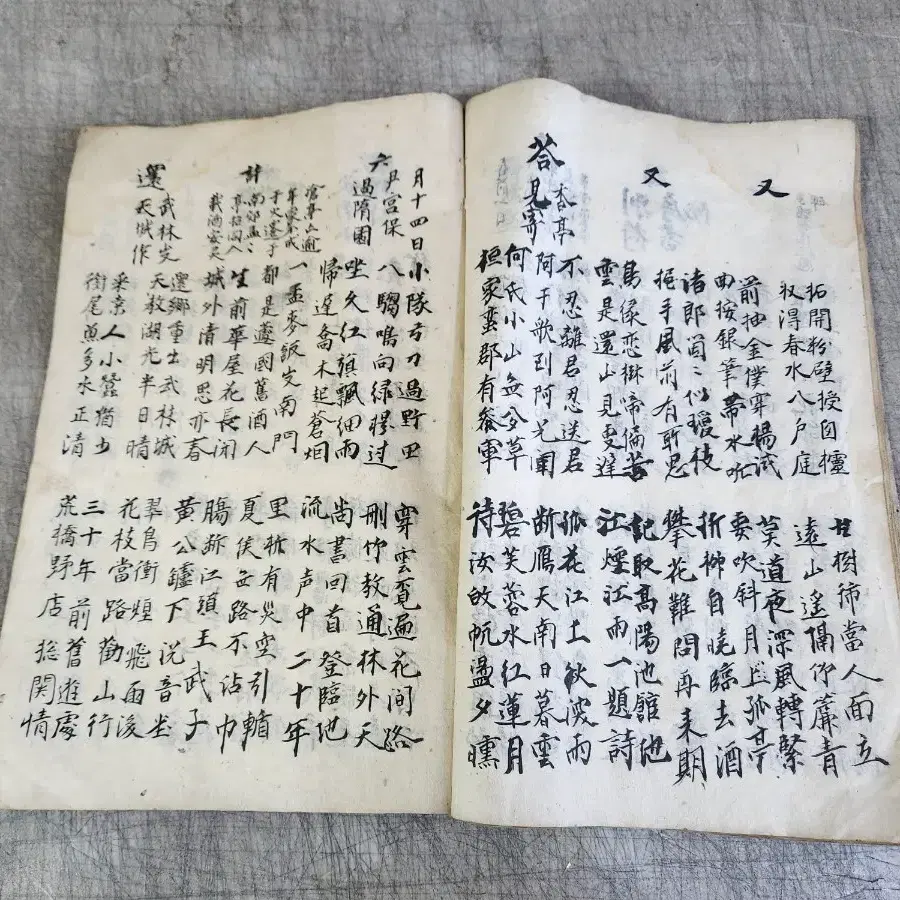 又
拓開粉壁換囱欞
収得春水八戶庭
廿樹㳍當人面立
遠山遙隔仰簾青
又
前抽金僕穿楊試
曲按銀筆帶水吹
莫道夜深風轉緊
要吹斜月上孤亭
又
諸郎箇〻似瓊枝
握手風前有所思
折柳自曉臨去酒
攀花難問再来期
鳥緣恋樹啼偏苦
雲是還山見更遲
記取高陽池館他
江煙江雨一題詩
荅見寄
杏亭
不忍離君忍送君
阿干歌到阿兄聞
孤花江上秋波雨
断鴈天南日暮雲
何氏小山無分草
桓家蛮郡有參軍
碧芙蓉水紅蓮月
待汝的帆盪夕曛
六月十四日
尹宮保過隋園
小隊弓刀過野田
八騶鳴向綠楊过
穿雲覔遍花間路
刪竹教通林外天
坐久紅旗飄細雨
帰遅喬木起蒼烟
尚書回首登臨地
流水声中二十年
一盂麥飯出南門
都是遵國舊酒人
里〻有災空引輀
夏侯無路不沾巾
生前華屋花長闭
城外清明思亦春
腸斷江頭王武子
黃公罏下説音塵
還
武林出天城作
還鄉重出武林城
天教湖光半日晴
翠鳥銜煙飛雨後
花枝當路勸山行
采桑人小蠶猶少
街尾魚多水正清
三十年前舊遊處
荒橋野店総関情